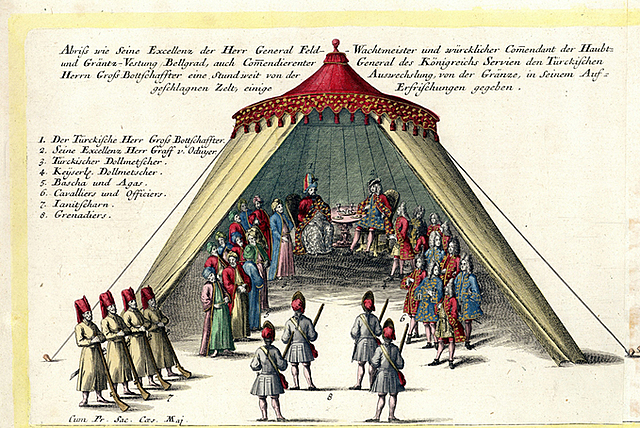 Abriß wie Seine Excellenz der Herr General Feld-Wachtmeister und würcklicher Com̄endant der Haubt=
und Gräntz-Vestung Bellgrad, auch Com̄endierenter General des Königreichs Servien den Türckischen
Herrn Groß Bottschaffter eine Stund weit von der Auswechslung, von der Gränze, in seinem Auf=
geschlagnen Zelt, einige Erfrischungen gegeben.
1. Der Türckische Herr Groß Bottschaffter.
2. Seine Excellenz Herr Graff v. Oduyer
3. Türckischer Dollmetscher.
4. Keyserls. Dollmetscher.
5. Bascha und Agas.
6. Cavalliers und Officiers.
7. Ianitscharn.
8. Grenadiers.
6
7
8
Cum Pr. Sac. Cæs. Maj.